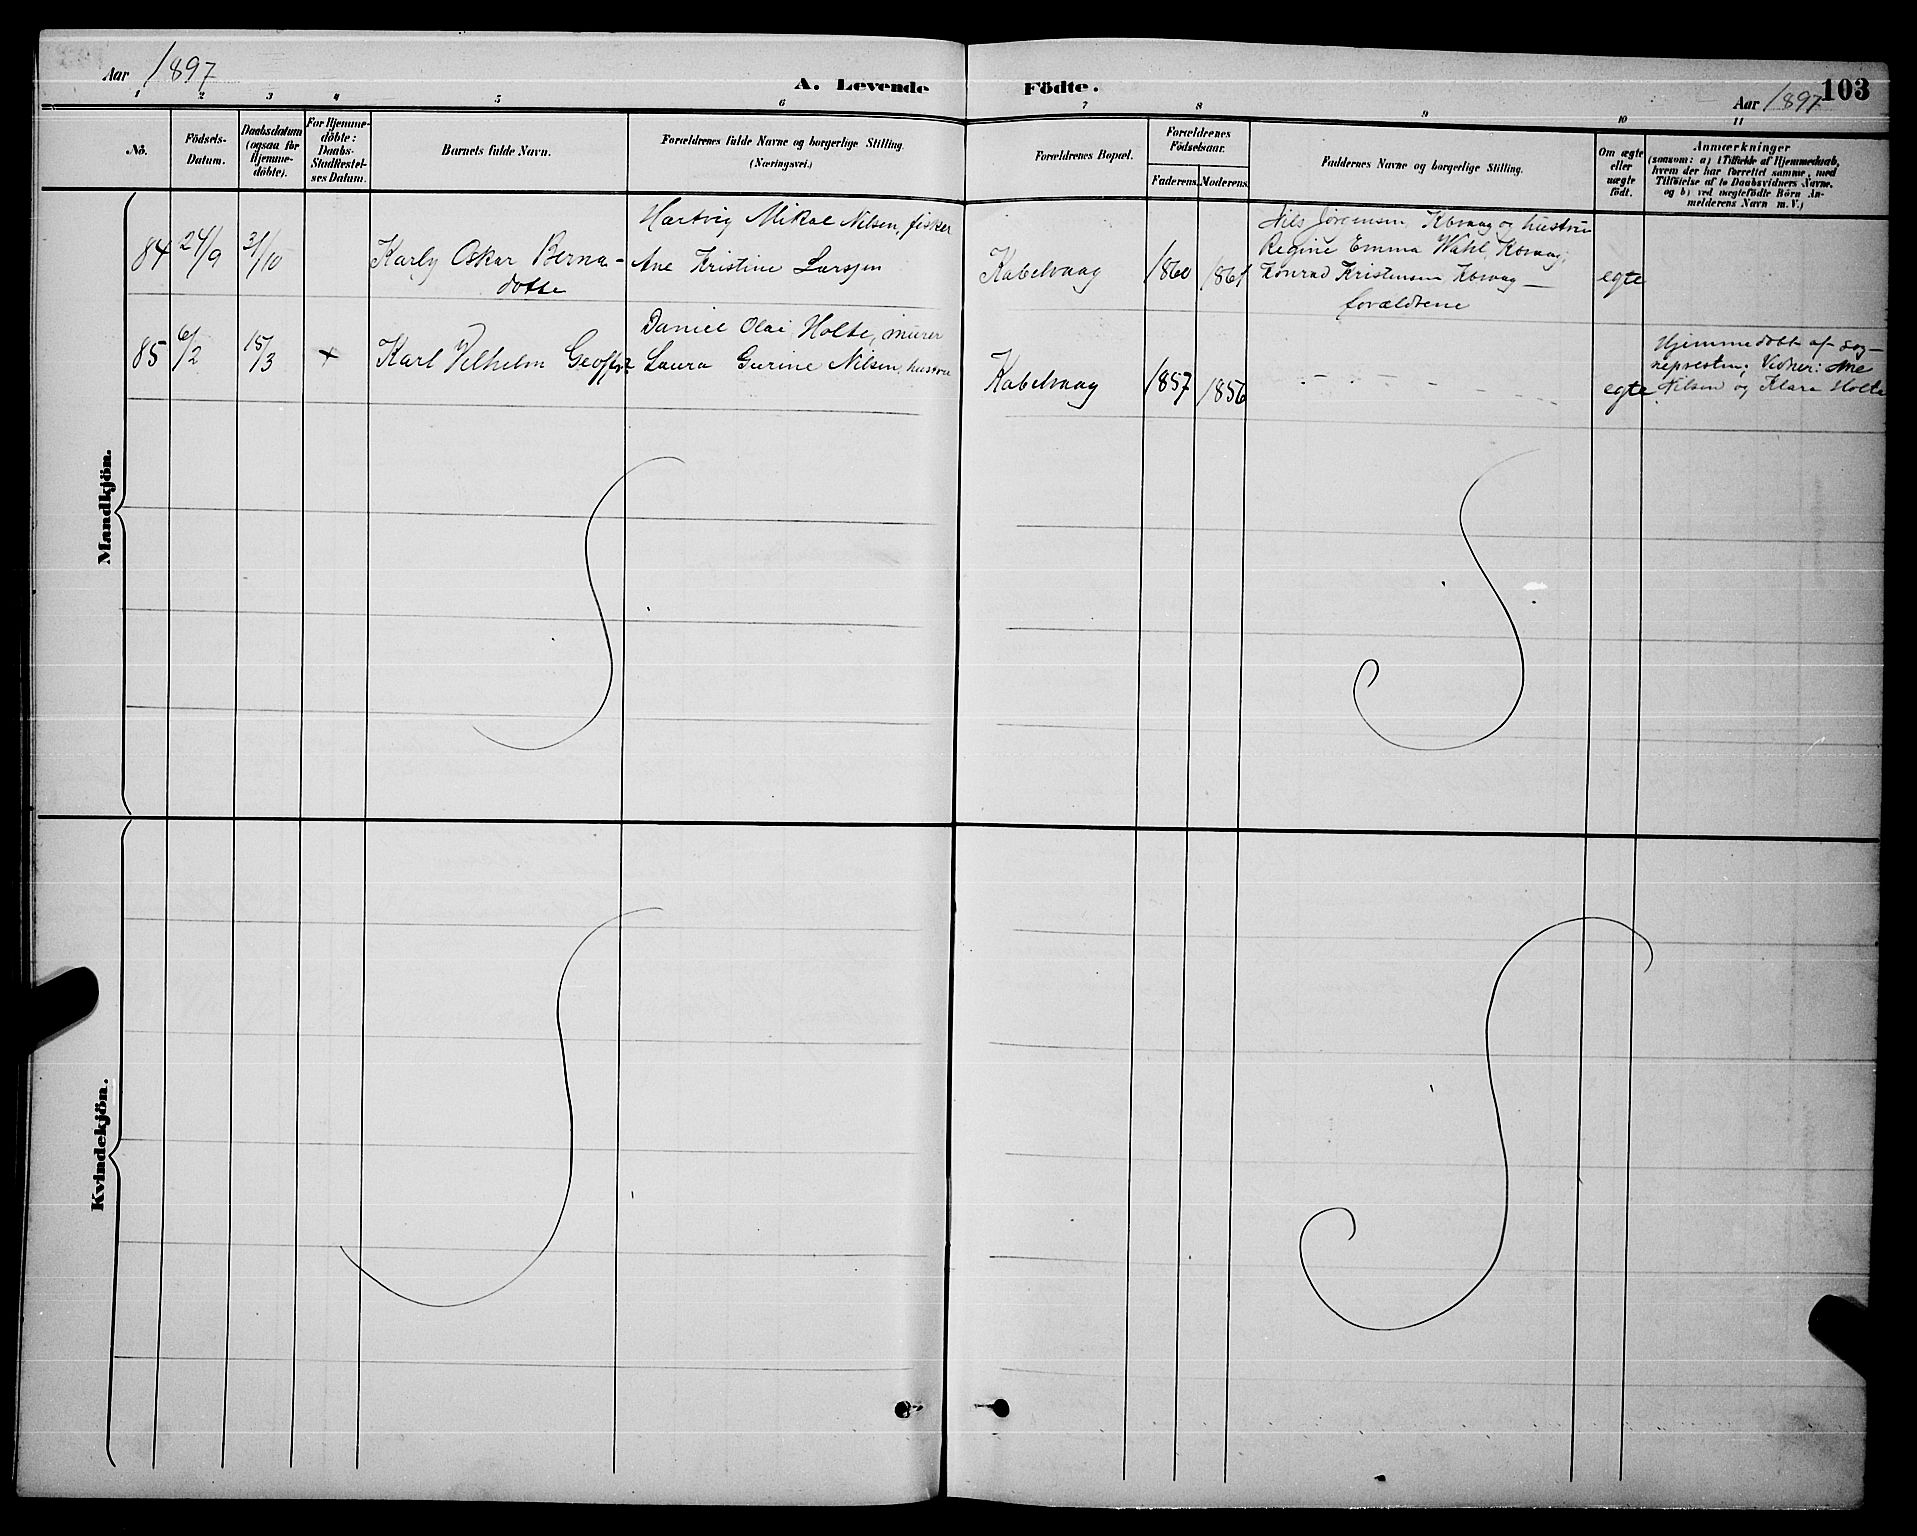 Aar 1897
A. Levende Födte.
Aar 1897
103
1 2 3 4 5 6 7 8 9 10 11
No.
Födsels-
Datum.
Daabsdatum
(ogsaa for
Hjemme-
döbte).
For Hjemme-
döbte:
Daabs-
Stadfæstel-
ses Datum.
Barnets fulde Navn.
Forældrenes fulde Navne og borgerlige Stilling.
(Næringsvei.)
Forældrenes Bopæl.
Forældrenes
Födselsaar.
Faderens. Moderens.
Faddernes Navne og borgerlige Stilling.
Om ægte
eller
uægte
födt.
Anmærkninger
(saasom: a) i Tilfælde af Hjemmedaab,
hvem der har forrettet samme, med
Tilföielse af to Daabsvidners Navne,
og b) ved uægtefödte Börn An-
melderens Navn m. V.)
Mandkjön.
84
24/9
31/10
Karly Oskar Berna-
dotte
Hartvig Mikal Nilsen, fisker
Ane Kristine Larssen
Kabelvaag
1860
1861
Nils Jørgensen, Kbvaag og hustru
Regine Emma Wahl, Kbvaag;
Konrad Kristensen Kbvaag —
forældrene
egte
85
6/2
15/3
+
Karl Vilhelm
Daniel Olai Holte, murer
Laura Gurine Nilsen, hustru
Kabelvaag
1857
1856
egte
Hjemmedøbt af sog-
nepresten; Vidner: Ane
Nilsen og Klara Holte
Kvindekjön.